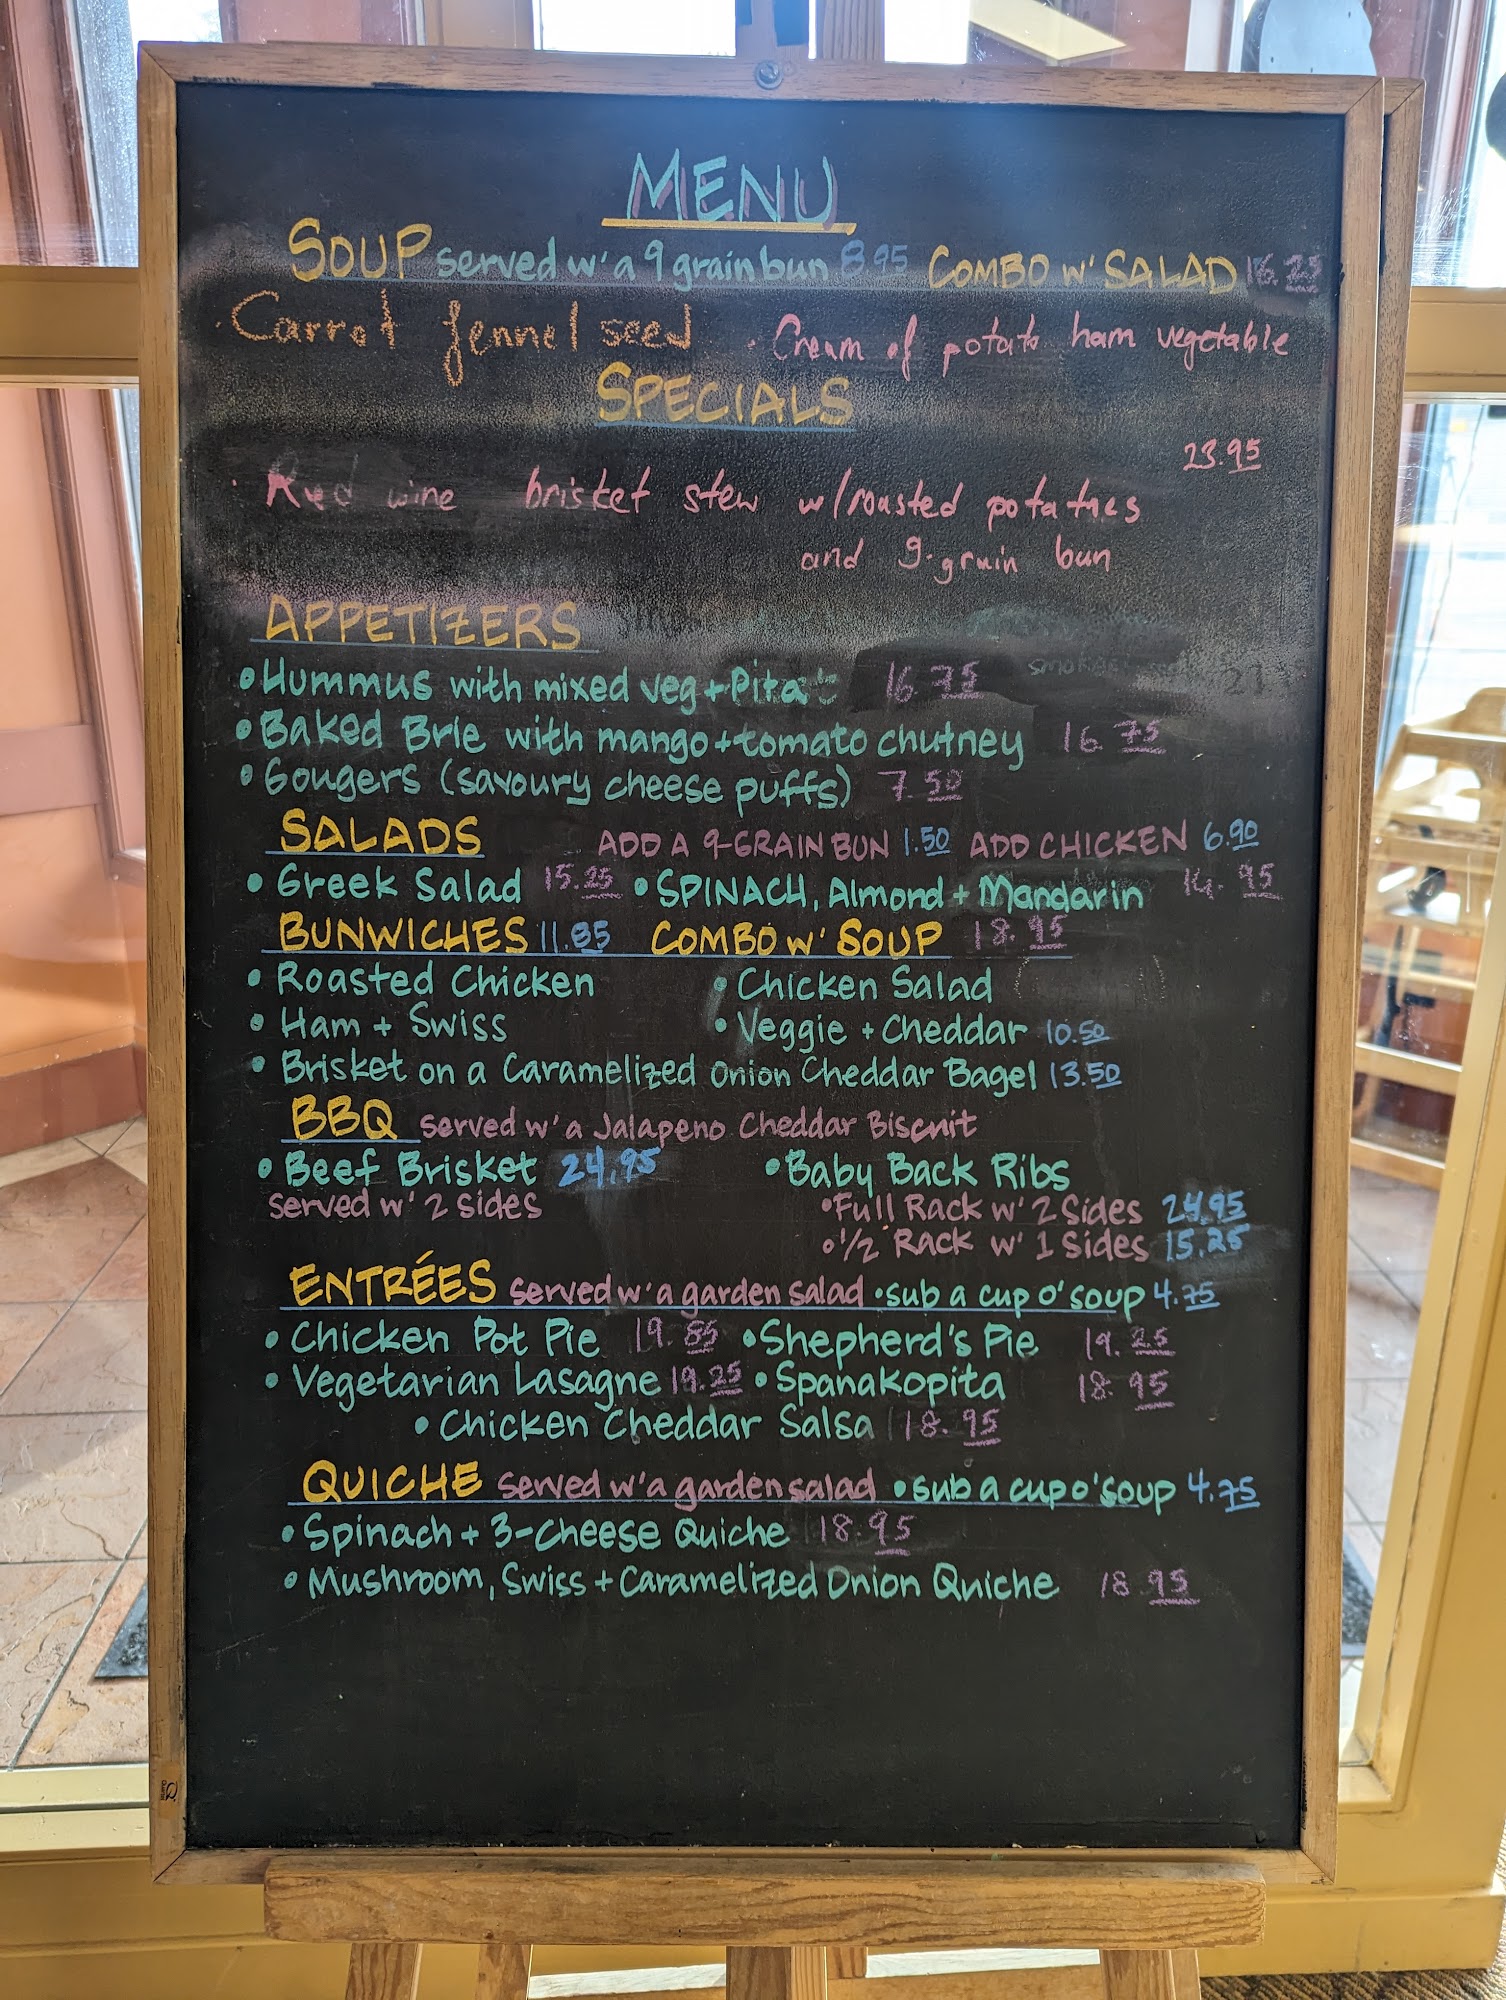 MENU
SOUP served w' a 9 grain bun 8.95 COMBO w' SALAD 16.25
· Carrot fennel seed · Cream of potato ham vegetable
SPECIALS
23.95
· Red wine brisket stew w/roasted potatoes
and 9-grain bun
APPETIZERS
• Hummus with mixed veg + Pita 16.75
• Baked Brie with mango + tomato chutney 16.75
• Gougers (savoury cheese puffs) 7.50
SALADS ADD A 9-GRAIN BUN 1.50 ADD CHICKEN 6.90
• Greek Salad 15.25 • SPINACH, Almond + Mandarin 14.95
BUNWICHES 11.85 COMBO w' SOUP 18.95
• Roasted Chicken • Chicken Salad
• Ham + Swiss • Veggie + Cheddar 10.50
• Brisket on a Caramelized Onion Cheddar Bagel 13.50
BBQ served w' a Jalapeno Cheddar Biscuit
• Beef Brisket 24.95 • Baby Back Ribs
served w' 2 sides • Full Rack w' 2 Sides 24.95
• 1/2 Rack w' 1 Sides 15.25
ENTRÉES served w' a garden salad • sub a cup o' soup 4.75
• Chicken Pot Pie 19.85 • Shepherd's Pie 19.25
• Vegetarian Lasagne 19.25 • Spanakopita 18.95
• Chicken Cheddar Salsa 18.95
QUICHE served w' a garden salad • sub a cup o' soup 4.75
• Spinach + 3-Cheese Quiche 18.95
• Mushroom, Swiss + Caramelized Onion Quiche 18.95